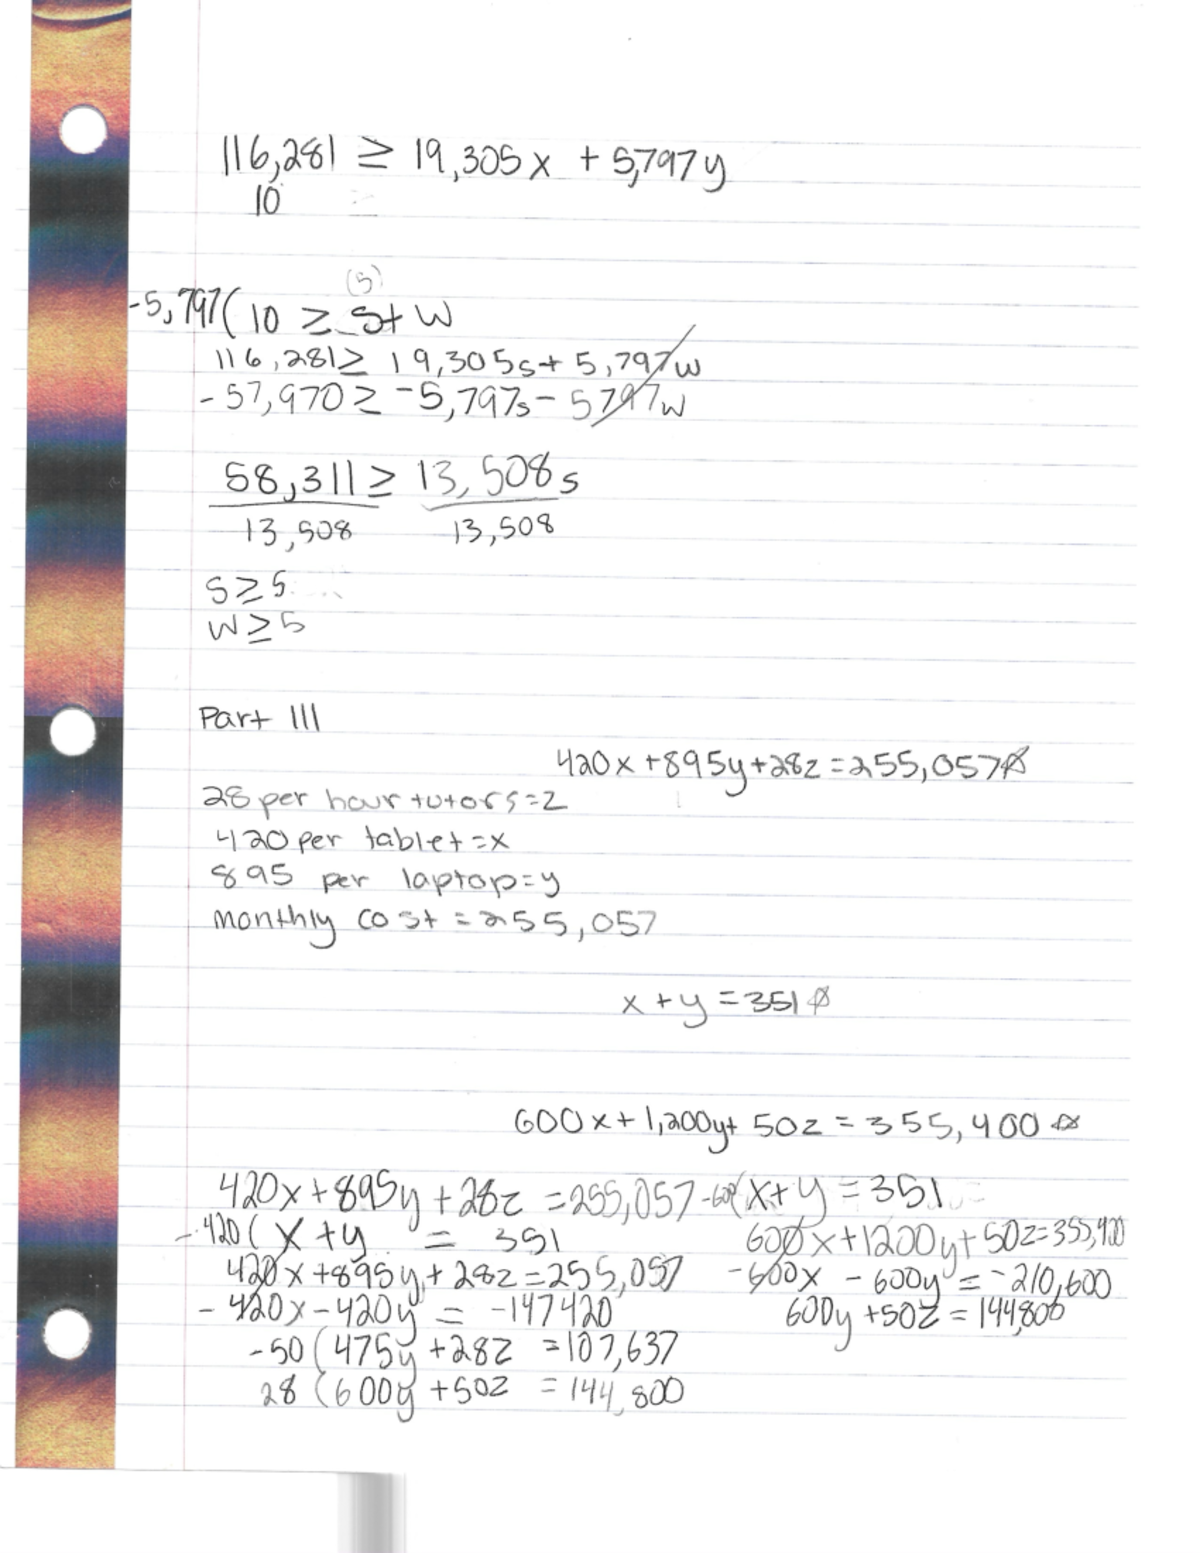 116,281 ≥ 19,305x + 5,797y
10 ≥
(5)
-5,797( 10 ≥ S+ W
116,281≥ 19,305s+ 5,797w
-57,970≥ -5,797s- 5797w
58,311≥ 13,508s
13,508 13,508
S≥5
W≥5
Part III
420x+895y+28z=255,057
28 per hour tutors=z
420 per tablet=x
895 per laptop=y
monthly cost=255,057
x+y=351
600x+1,200y+ 50z=355,400
420x+895y+28z=255,057 -600(x+y=351
-420(x+y = 351 600x+1200y+50z=355,400
420x+895y+28z=255,057 -600x - 600y=-210,600
-420x-420y = -147420 600y+50z=144,800
-50(475y+28z =107,637
28(600y+50z =144,800